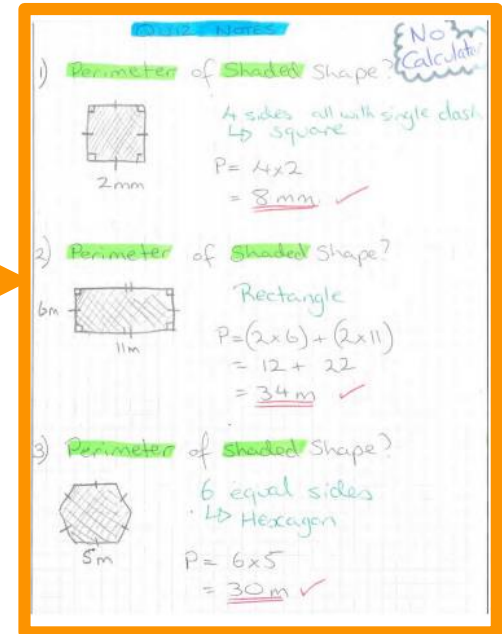 QUIZ NOTES
No Calculator
1) Perimeter of Shaded Shape?
4 sides all with single dash
↳ square
2mm
P= 4x2
= 8mm ✓
2) Perimeter of Shaded Shape?
Rectangle
6m
11m
P=(2x6) + (2x11)
= 12 + 22
= 34m ✓
3) Perimeter of shaded Shape?
6 equal sides
↳ Hexagon
5m
P= 6x5
= 30m ✓